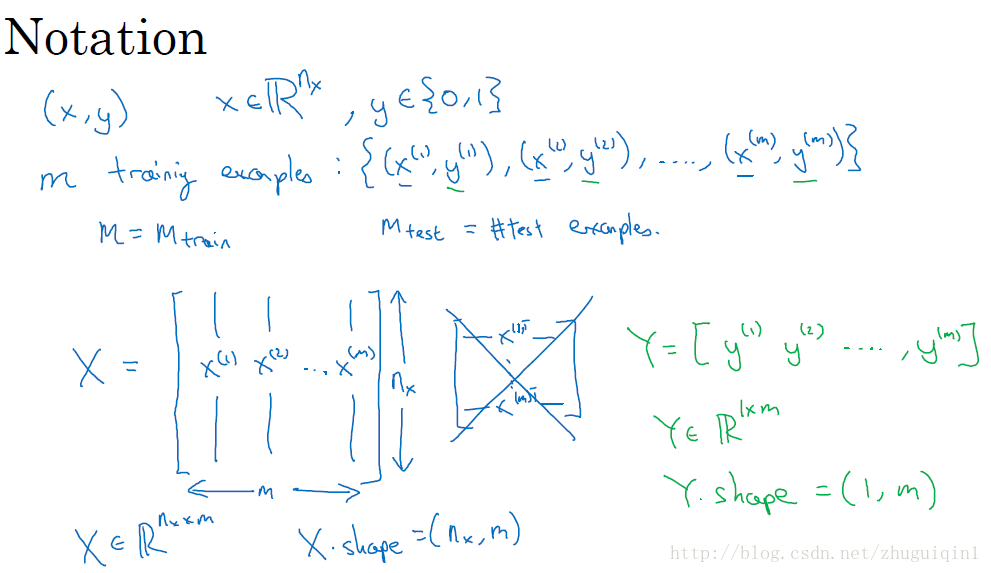 Notation
(x, y) x ∈ ℝ^{n_x}, y ∈ {0, 1}
m training examples : {(x^{(1)}, y^{(1)}), (x^{(2)}, y^{(2)}), ...., (x^{(m)}, y^{(m)})}
M = M_{train} M_{test} = #test examples.
X = [ x^{(1)} x^{(2)} ... x^{(m)} ] n_x
x^{(1)T}
⋮
x^{(m)T}
m
X ∈ ℝ^{n_x × m} X.shape = (n_x, m)
Y = [ y^{(1)} y^{(2)} ...., y^{(m)} ]
Y ∈ ℝ^{1×m}
Y.shape = (1, m)
http://blog.csdn.net/zhuguiqin1